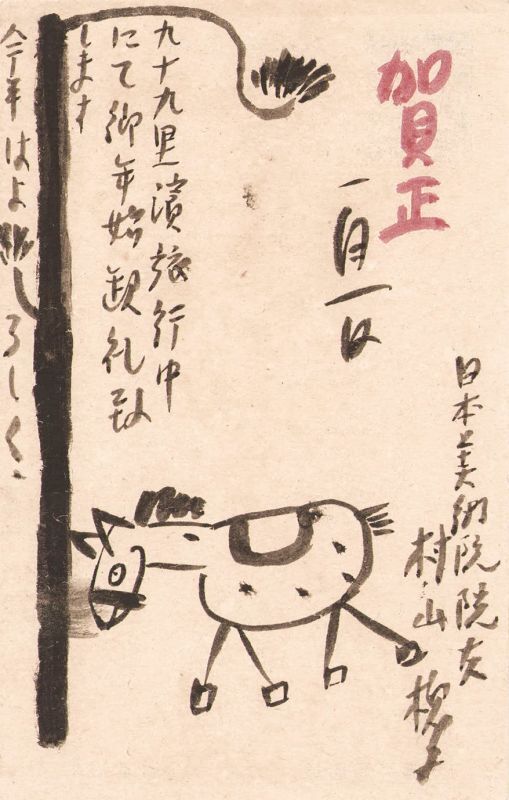 賀正
一月一日
日本美術院院友
村山槐多
九十九里濱旅行中
にて御年始缺礼致
します
今年はよろしく、